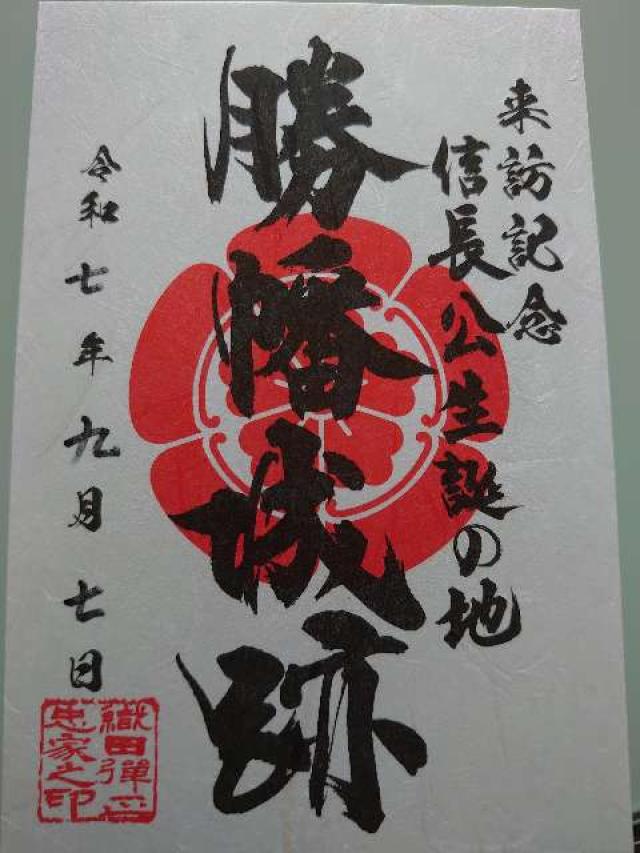 来訪記念
信長公生誕の地
勝幡城跡
令和七年九月七日
織田弾正
忠家之印